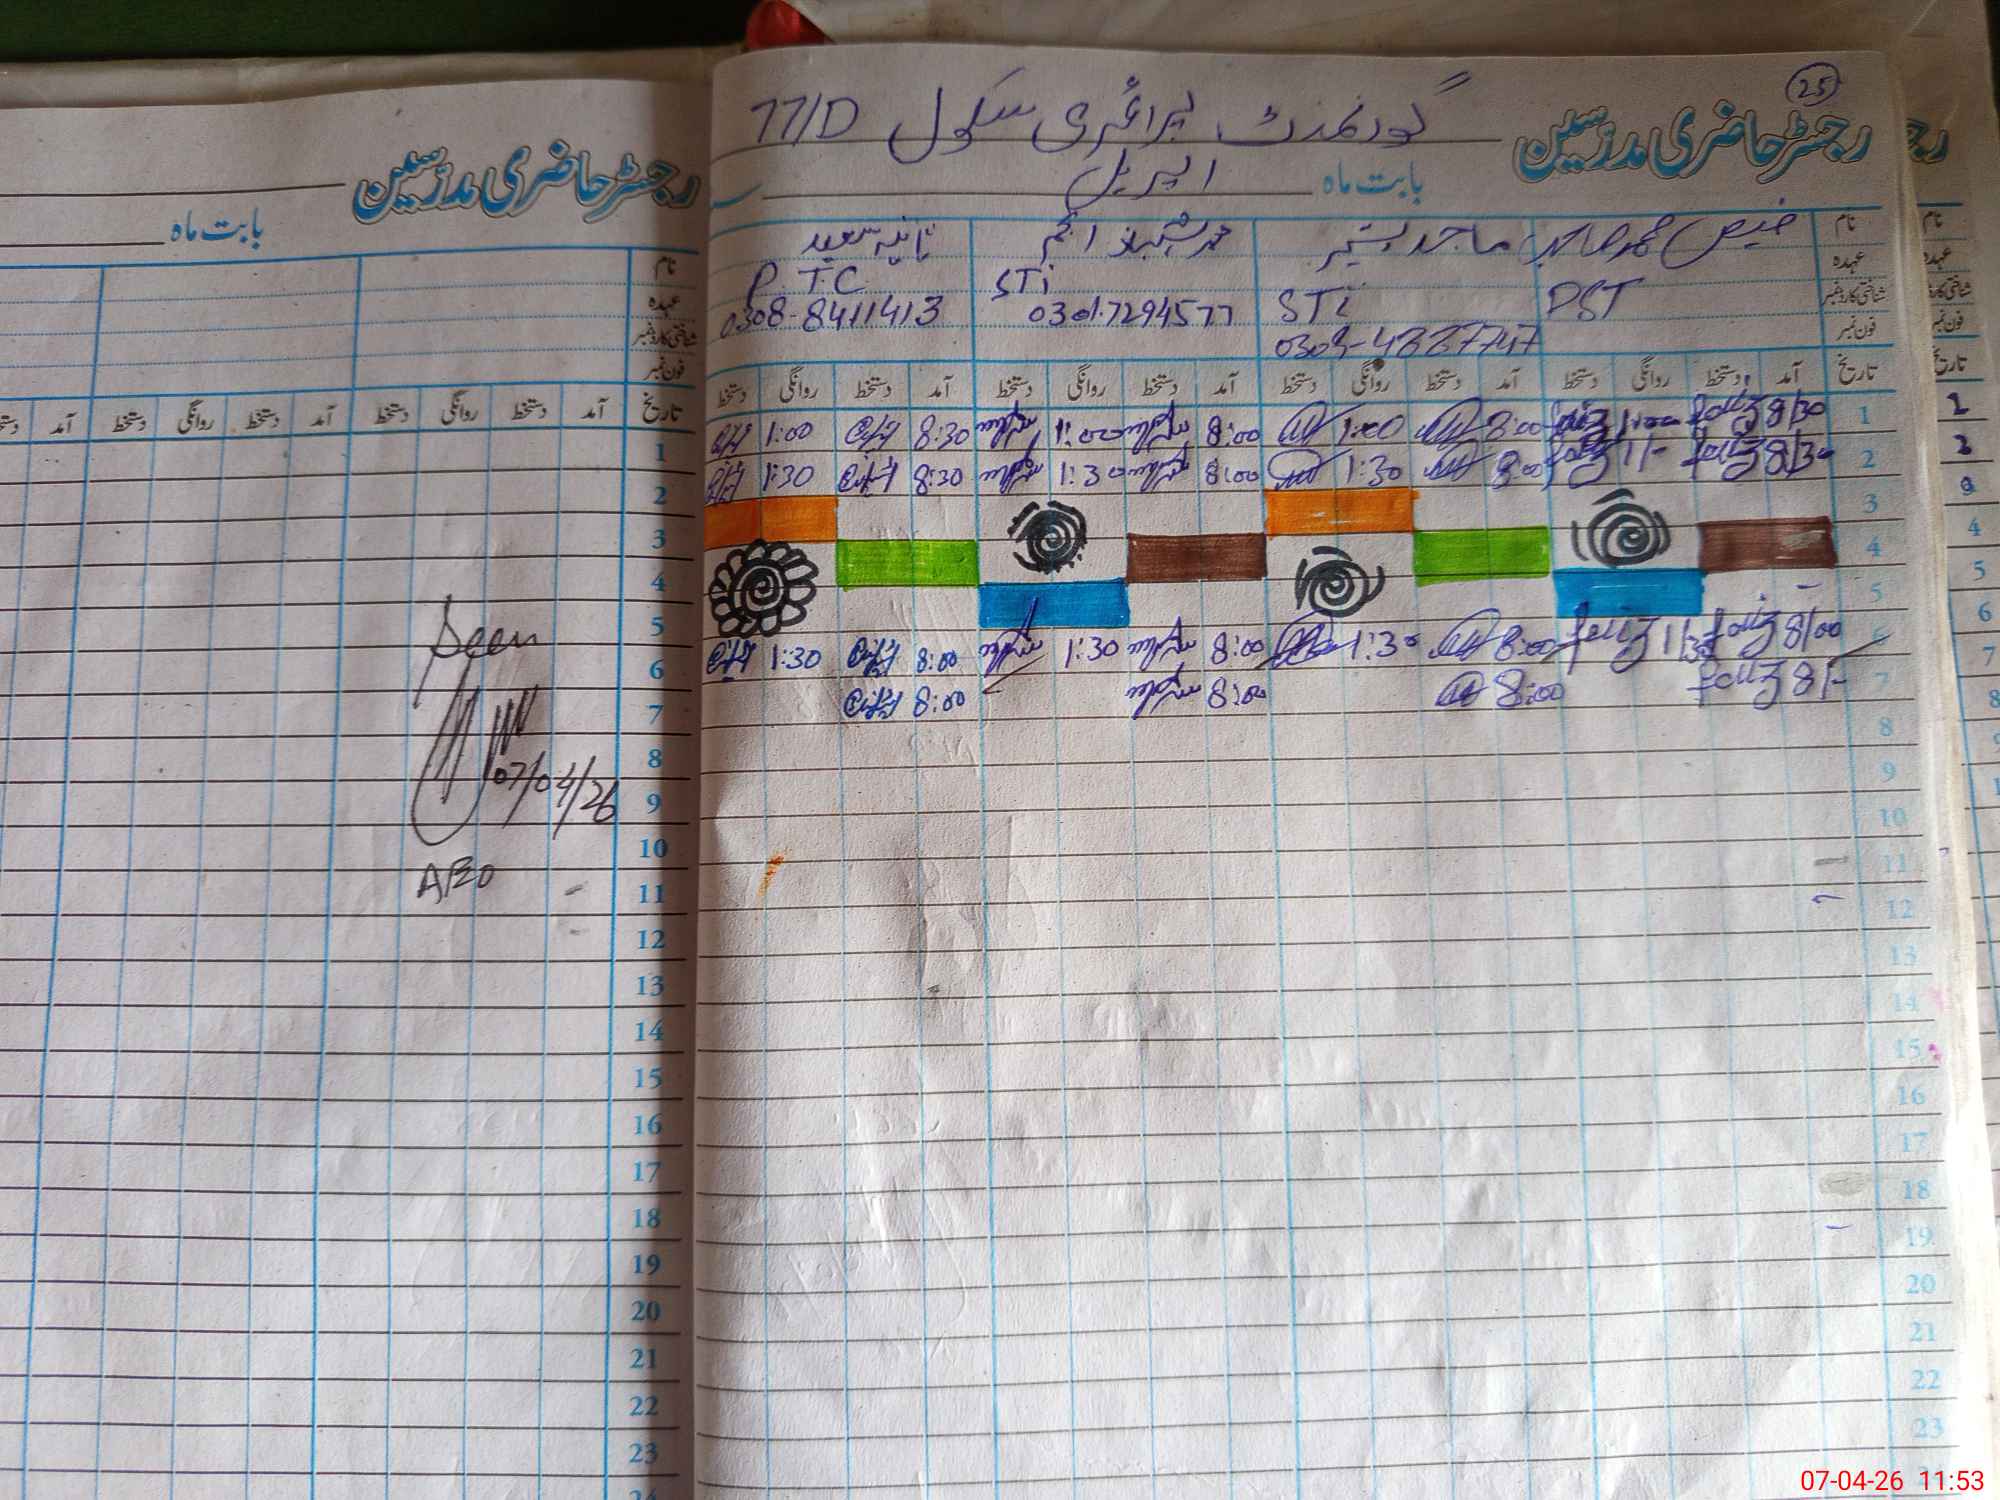 25
رجسٹر حاضری مدرسین گورنمنٹ پرائمری سکول 77/D
بابت ماہ اپریل
نام فیض محمد صابر ماجد بشیر محمد شہباز انجم ثانیہ سعید
عہدہ PST STi STi P.T.C
شناختی کارڈ نمبر
فون نمبر 0301.7294577 0308-8411413
تاریخ آمد دستخط روانگی دستخط آمد دستخط روانگی دستخط آمد دستخط روانگی دستخط آمد دستخط روانگی دستخط
1 8/30 Faiz 8:00 1:00 8:00 8:30 1:00
2 8/30 Faiz 1/- Faiz 8:00 1:30 8:00 1:30 8:30 1:30
3
4
5
6 8/00 Faiz 1/30 Faiz 8:00 1:30 8:00 1:30 8:00 1:30
7 8/- Faiz 8:00 8:00 8:00
8
9
10
11
12
13
14
15
16
17
18
19
20
21
22
23
رجسٹر حاضری مدرسین
بابت ماہ
نام
عہدہ
شناختی کارڈ نمبر
فون نمبر
تاریخ آمد دستخط روانگی دستخط آمد دستخط روانگی دستخط آمد
1
2
3
4
5
6
7
8
9
10
11
12
13
14
15
16
17
18
19
20
21
22
23
24
Seen
07/04/26
AEO
07-04-26 11:53